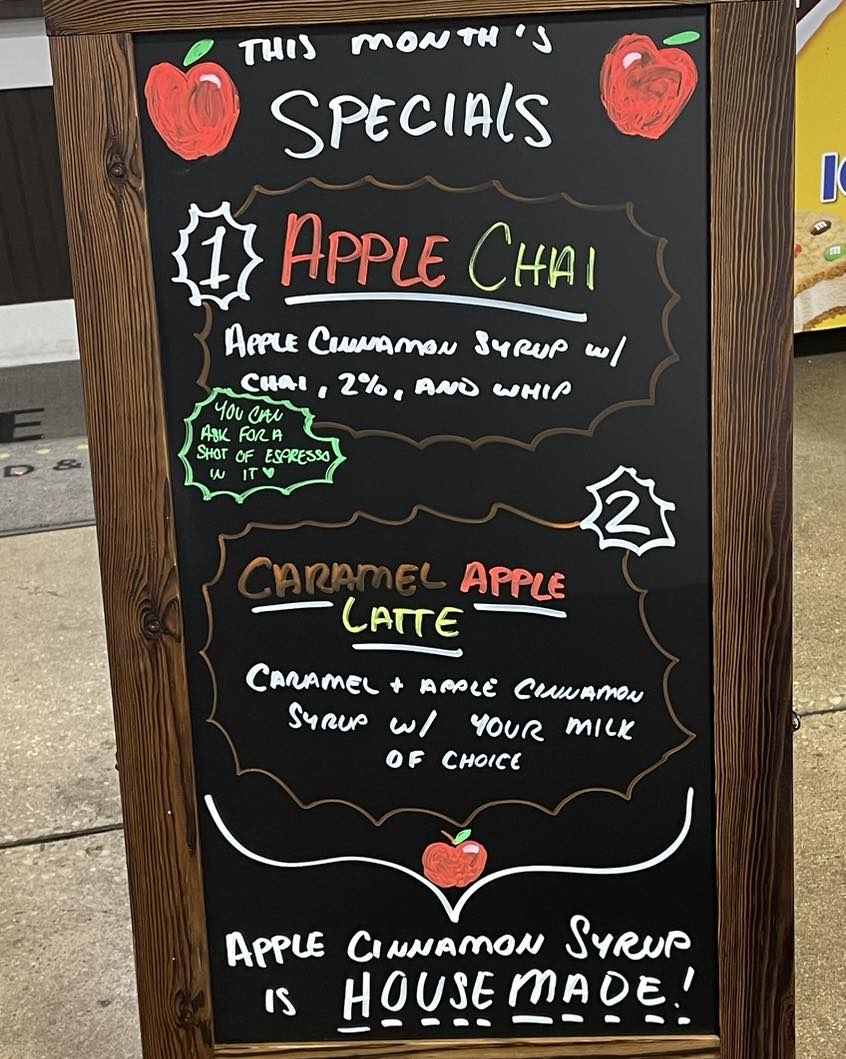 THIS MONTH'S
SPECIALS
1
APPLE CHAI
APPLE CINNAMON SYRUP W/
CHAI, 2%, AND WHIP
YOU CAN
ASK FOR A
SHOT OF ESPRESSO
IN IT ♥
2
CARAMEL APPLE
LATTE
CARAMEL + APPLE CINNAMON
SYRUP W/ YOUR MILK
OF CHOICE
APPLE CINNAMON SYRUP
IS HOUSEMADE!